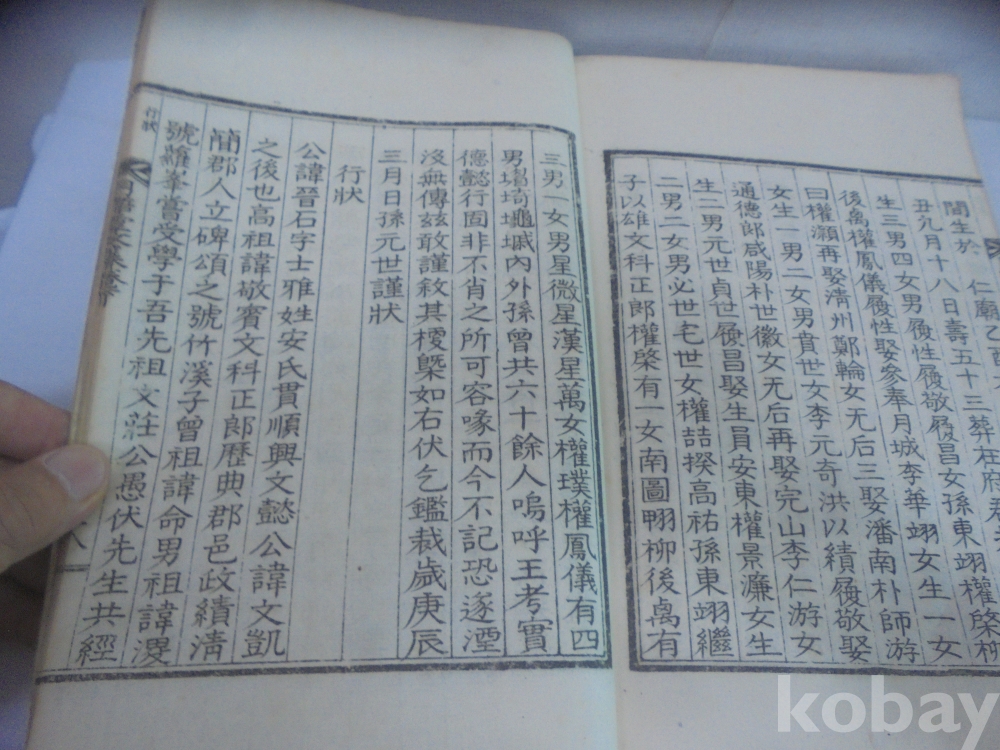 間生於 仁廟乙酉
丑九月十八日壽五十三葬在府
生三男四女男履性履敬履昌女孫東翊權棨柳
後禼權鳳儀履性娶參奉月城李華翊女生一女
曰權灝再娶淸州鄭輪女无后三娶潘南朴師游
女生一男二女男賁世女李元奇洪以績履敬娶
通德郎咸陽朴世徽女无后再娶完山李仁游女
生二男元世貞世履昌娶生員安東權景濂女生
二男二女男必世宅世女權喆揆高祐孫東翊繼
子以雄文科正郎權棨有一女南圖翙柳後禼有
三男一女男星微星漢星萬女權璞權鳳儀有四
男壻琦 內外孫曾共六十餘人嗚呼王考實
德懿行固非不肖之所可容喙而今不記恐遂湮
沒無傳玆敢謹敘其梗槩如右伏乞鑑裁歲庚辰
三月日孫元世謹狀
行狀
公諱晉石字士雅姓安氏貫順興文懿公諱文凱
之後也高祖諱敬賓文科正郎歷典郡邑政績淸
簡郡人立碑頌之號竹溪子曾祖諱命男祖諱
號蘿峯嘗受學于吾先祖文莊公愚伏先生共經
行狀
八
kobay